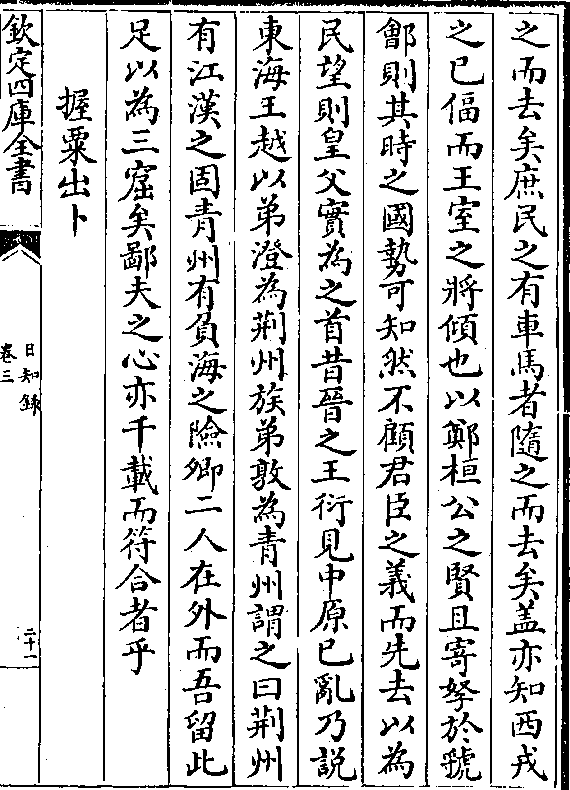 之而去矣庶民之有車馬者隨之而去矣盖亦知西戎
之已偪而王室之將傾也以鄭桓公之賢且寄孥於虢
鄶則其時之國勢可知然不顧君臣之義而先去以為
民望則皇父實為之首昔晉之王衍見中原已亂乃說
東海王越以弟澄為荆州族弟敦為青州謂之曰荆州
有江漢之固青州有負海之險卿二人在外而吾留此
足以為三窟矣鄙夫之心亦千載而符合者乎
握粟出卜
欽定四庫全書
日知録
卷三
二十一